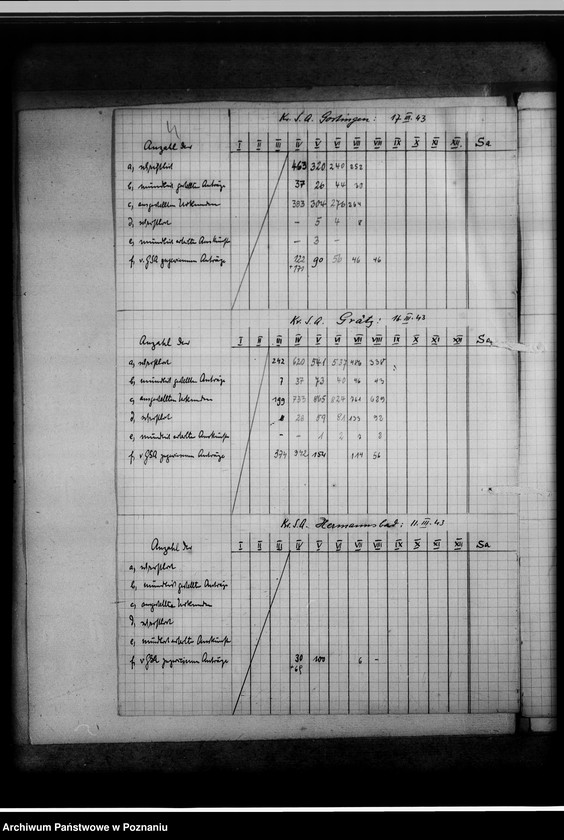 Kr. S. A. Gostingen: 17. III. 43
Anzahl der I II III IV V VI VII VIII IX X XI XII Sa
a, schriftlich 463 320 240 252
b, mündlich gestellten Anträge 37 26 44
c, ausgestellten Urkunden 303 304 276 264
d, schriftlich – 5 4 8
e, mündlich erteilten Auskünfte – 3 –
f, v. GSA zugewiesenen Anträge 122 90 56 46 46
+171
Kr. S. A. Grätz: 16. III. 43
Anzahl der I II III IV V VI VII VIII IX X XI XII Sa
a, schriftlich 242 620 541 537 486
b, mündlich gestellten Anträge 7 37 73 40 96 43
c, ausgestellten Urkunden 199 733 865 824 761 689
d, schriftlich 26 89 81 133 92
e, mündlich erteilten Auskünfte – – 1 2 2 2
f, v GSA zugewiesenen Anträge 374 342 154 114 56
Kr. S. A. Hermannsbad: 11. III. 43
Anzahl der I II III IV V VI VII VIII IX X XI XII Sa
a, schriftlich
b, mündlich gestellten Anträge
c, ausgestellten Urkunden
d, schriftlich
e, mündlich erteilten Auskünfte
f, v GSA zugewiesenen Anträge 30 100 6 –
+69
Archiwum Państwowe w Poznaniu